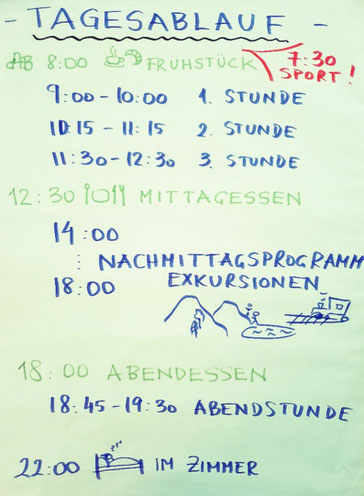 - TAGESABLAUF -
AB 8:00 FRÜHSTÜCK
7:30
SPORT!
9:00-10:00 1. STUNDE
10:15-11:15 2. STUNDE
11:30-12:30 3. STUNDE
12:30 MITTAGESSEN
14:00
NACHMITTAGSPROGRAMM
18:00 EXKURSIONEN
18:00 ABENDESSEN
18:45-19:30 ABENDSTUNDE
22:00 IM ZIMMER